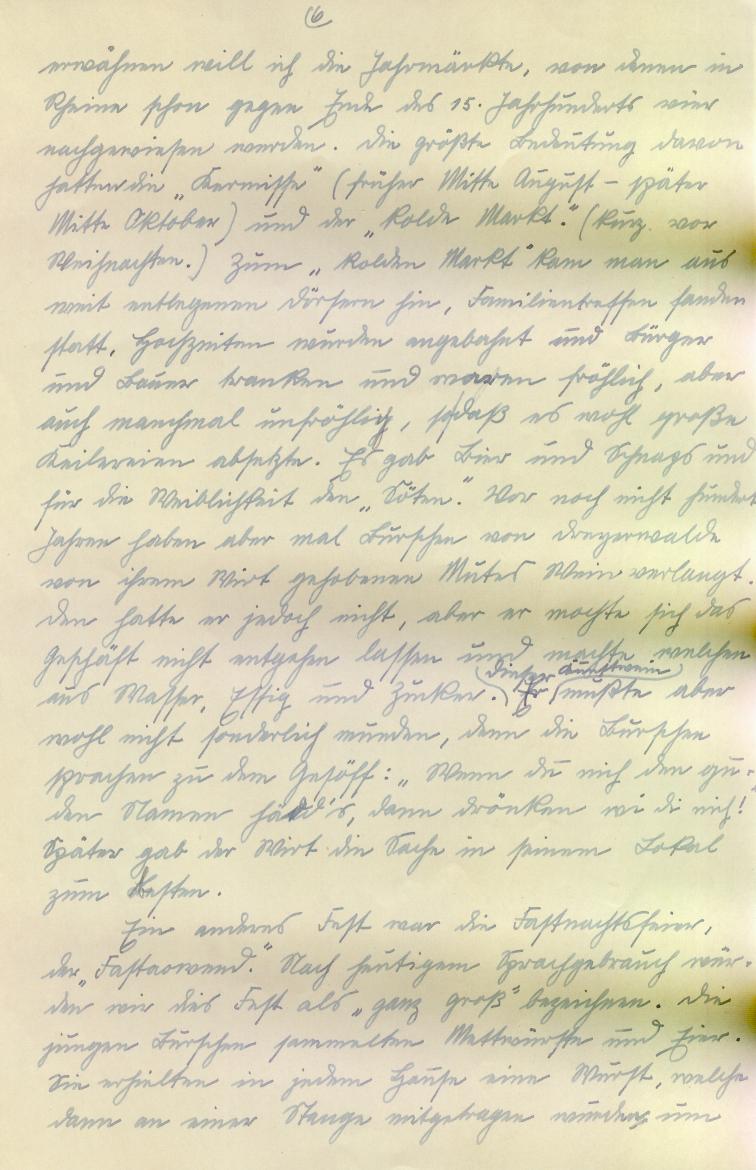 6
erwähnen will ich die Jahrmärkte, von denen in
Rheine schon gegen Ende des 15. Jahrhunderts vier
nachgewiesen werden. Die größte Bedeutung davon
hatten die „Kermisse" (früher Mitte August – später
Mitte Oktober) und der „kolde Markt." (kurz vor
Weihnachten.) Zum „kolden Markt" kam man aus
weit entlegenen Dörfern hin, Familientreffen fanden
statt, Hochzeiten wurden angebahnt und Bürger
und Bauer tranken und waren fröhlich, aber
auch manchmal unfröhlig, sodaß es wohl große
Keilereien absetzte. Es gab Bier und Schnaps und
für die Weiblichkeit den „Söten." Vor noch nicht hundert
Jahren haben aber mal Burschen von Dreyerwalde
von ihrem Wirt gehobenen Mutes Wein verlangt.
Den hatte er jedoch nicht, aber er mochte sich das
Geschäft nicht entgehen lassen und machte welchen
(Dieser Kunstwein)
aus Wasser, Essig und Zucker. Er mußte aber
wohl nicht sonderlich munden, denn die Burschen
sprachen zu dem Gesöff: „Wenn du nich den gu-
den Namen hädd's, dann drönken wi di nich!
Später gab der Wirt die Sache in seinem Lokal
zum Besten.
Ein anderes Fest war die Fastnachtsfeier,
der „Fastaowend." Nach heutigem Sprachgebrauch wür-
den wir dies Fest als „ganz groß" bezeichnen. Die
jungen Burschen sammelten Mettwürste und Eier.
Sie erhielten in jedem Hause eine Wurst, welche
dann an einer Stange mitgetragen wurden, um